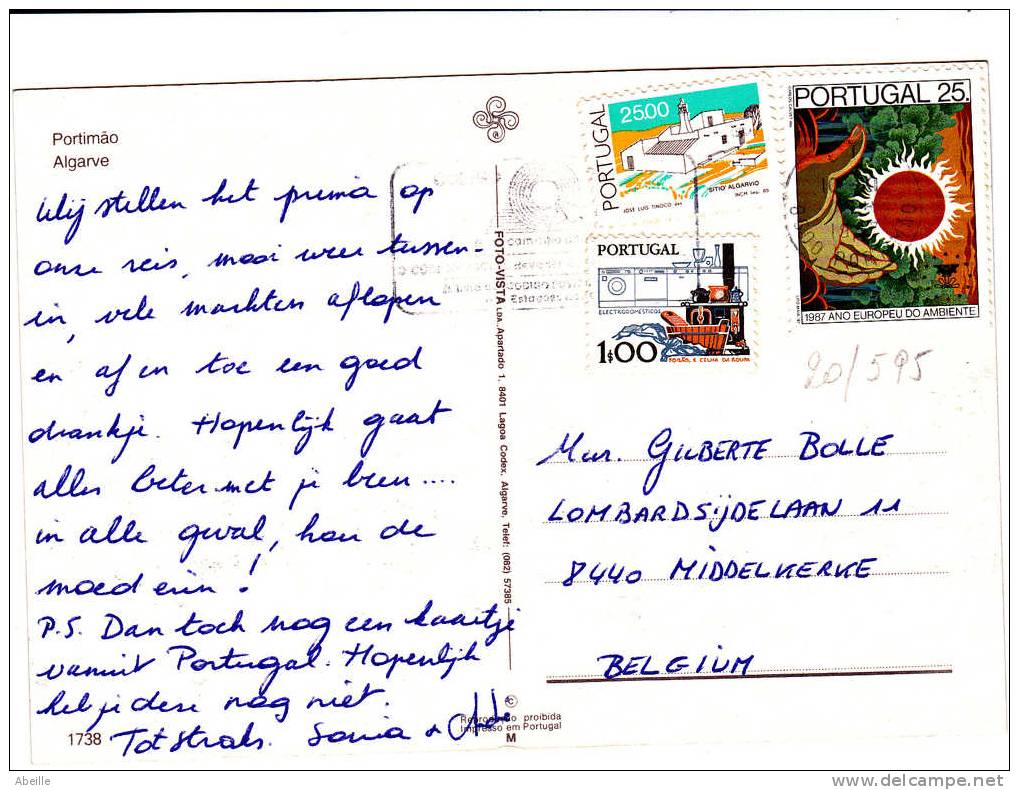 Portimão
Algarve
Wij stellen het prima op
onze reis, mooi weer tussen-
in, vele markten aflopen
en af en toe een goed
drankje. Hopenlijk gaat
alles beter met je been....
in alle geval, hou de
moed erin!
P.S. Dan toch nog een kaartje
vanuit Portugal. Hopenlijk
heb je deze nog niet.
Tot straks. Sonia +
1738
FOTO-VISTA LDA. Apartado 1, 8401 Lagoa Codex, Algarve, Telef: (082) 57385
©
Reprodução proibida
Impresso em Portugal
M
PORTUGAL
25.00
SITIO ALGARVIO
INCM
JOSE LUIS TINOCO
PORTUGAL
ELECTRODOMÉSTICOS
1$00
FOGÃO, E CELHA DA ROUPA
PORTUGAL 25.
1987 ANO EUROPEU DO AMBIENTE
CODIGO
Estações
20/595
GILBERTE BOLLE
LOMBARDSIJDELAAN 11
8440 MIDDELKERKE
BELGIUM
Abeille
http://www.delcampe.net